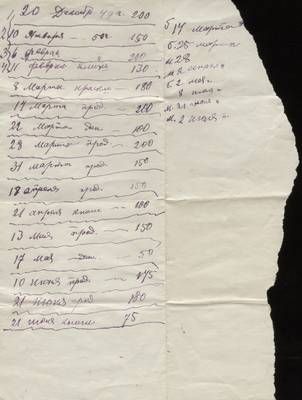 1) 20 Декабр 49г. 200
2) 10 Января - 50г 150
3) 6 февраля 200
4) 21 февраля книги 130
8 Марта краски - 180
14 Марта прод. - 200
22 Марта - 100
28 марта прод. - 200
31 марта прод. - 150
18 апреля прод. - 150
21 апреля книги - 100
13 мая прод. - 150
17 мая - 50
10 июня прод. - 175
21 июня прод 180
21 июня книги 75
б 14 марта
б. 25 марта
м. 28
б 2 мая
8 мая
м. 2 июня